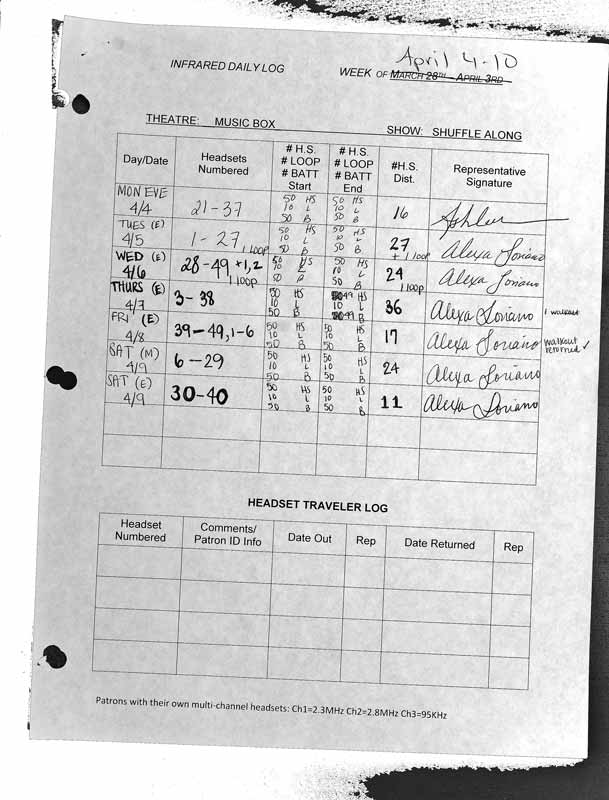 April 4-10
INFRARED DAILY LOG WEEK OF MARCH 28TH - APRIL 3RD
THEATRE: MUSIC BOX SHOW: SHUFFLE ALONG
Day/Date Headsets Numbered # H.S. # LOOP # BATT Start # H.S. # LOOP # BATT End #H.S. Dist. Representative Signature
MON EVE 4/4 21-37 50 HS 10 L 50 B 50 HS 10 L 50 B 16
TUES (E) 4/5 1-27 1 LOOP 50 HS 10 L 50 B 50 HS 10 L 50 B 27 + 1 loop Alexa Soriano
WED (E) 4/6 28-49 +1,2 1 LOOP 50 HS 10 L 50 B 50 HS 10 L 50 B 24 1 loop Alexa Soriano
THURS (E) 4/7 3-38 50 HS 10 L 50 B 50 49 HS 10 L 50 49 B 36 Alexa Soriano 1 walkout
FRI (E) 4/8 39-49, 1-6 50 HS 10 L 50 B 50 HS 10 L 50 B 17 Alexa Soriano walkout returned ✓
SAT (M) 4/9 6-29 50 HS 10 L 50 B 50 HS 10 L 50 B 24 Alexa Soriano
SAT (E) 4/9 30-40 50 HS 10 L 50 B 50 HS 10 L 50 B 11 Alexa Soriano
HEADSET TRAVELER LOG
Headset Numbered Comments/ Patron ID Info Date Out Rep Date Returned Rep
Patrons with their own multi-channel headsets: Ch1=2.3MHz Ch2=2.8MHz Ch3=95KHz